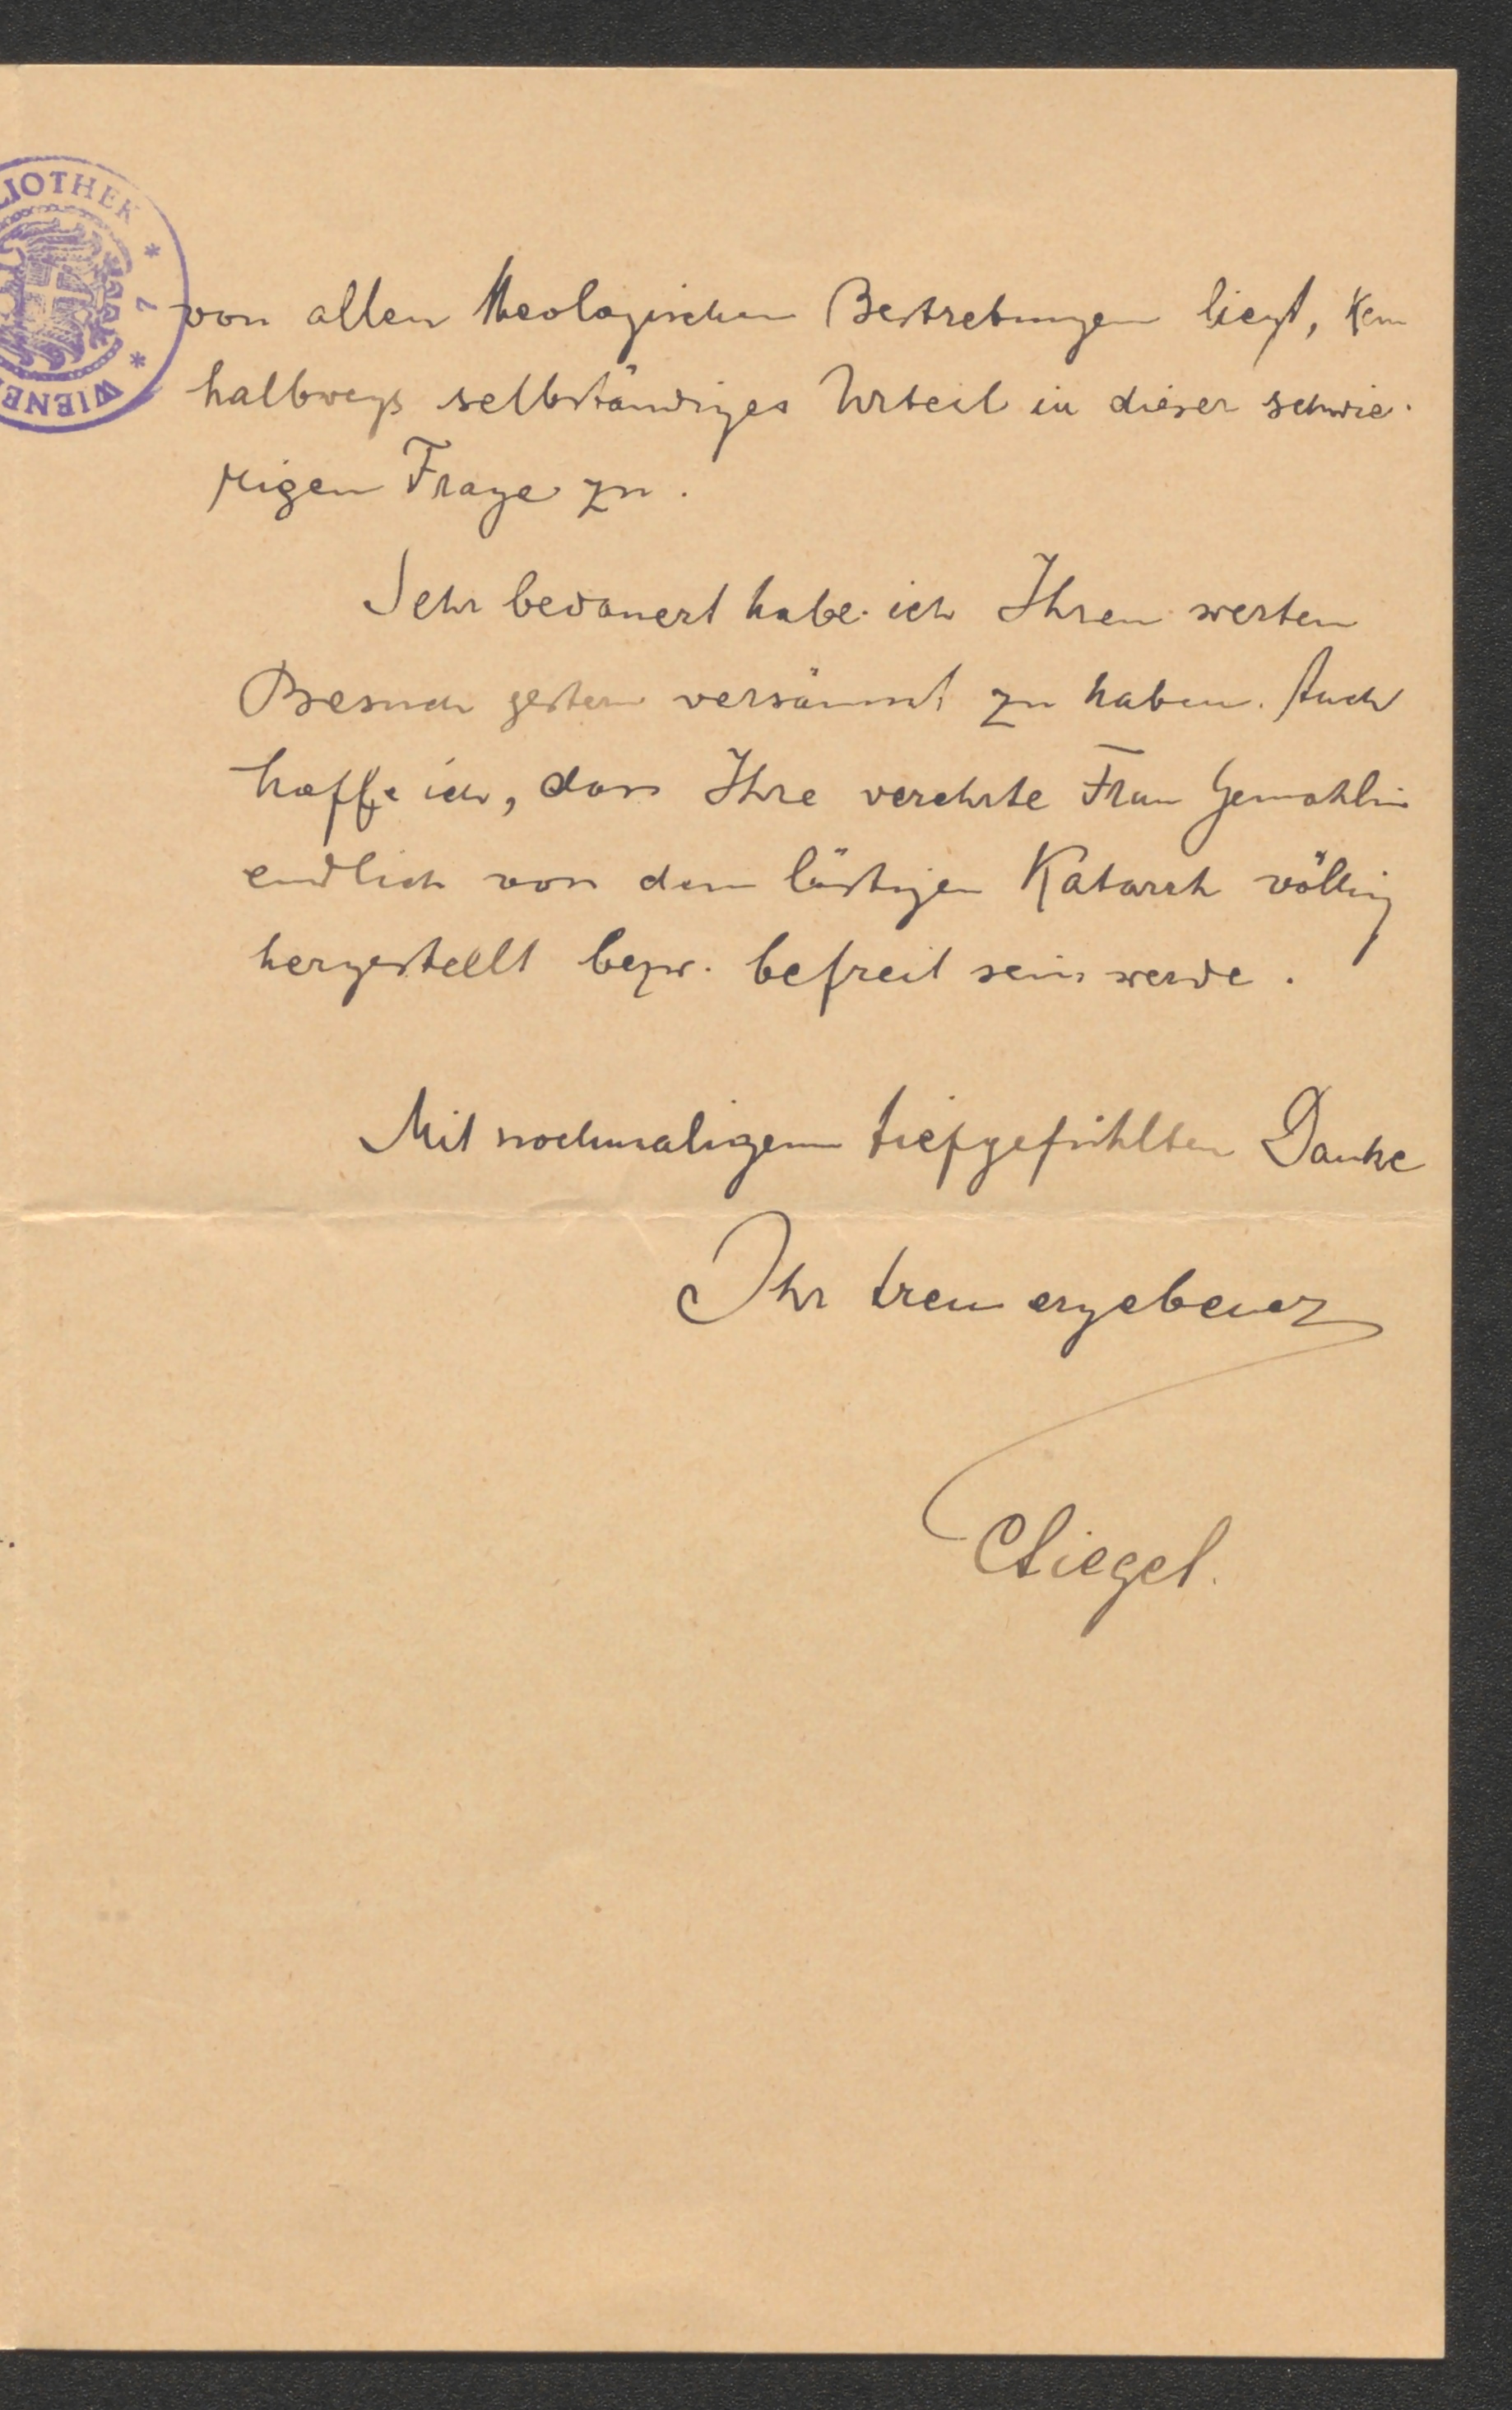 LIOTHEK * 7 * WIENE
von allen theologischen Bestrebungen liegt, kein
halbwegs selbständiges Urteil in dieser schwie-
rigen Frage zu.
Sehr bedauert habe ich Ihren werten
Besuch gestern versäumt zu haben. Auch
hoffe ich, dass Ihre verehrte Frau Gemahlin
endlich von dem lästigen Katarrh völlig
hergestellt bezw. befreit sein werde.
Mit nochmaligem tiefgefühlten Danke
Ihr treu ergebener